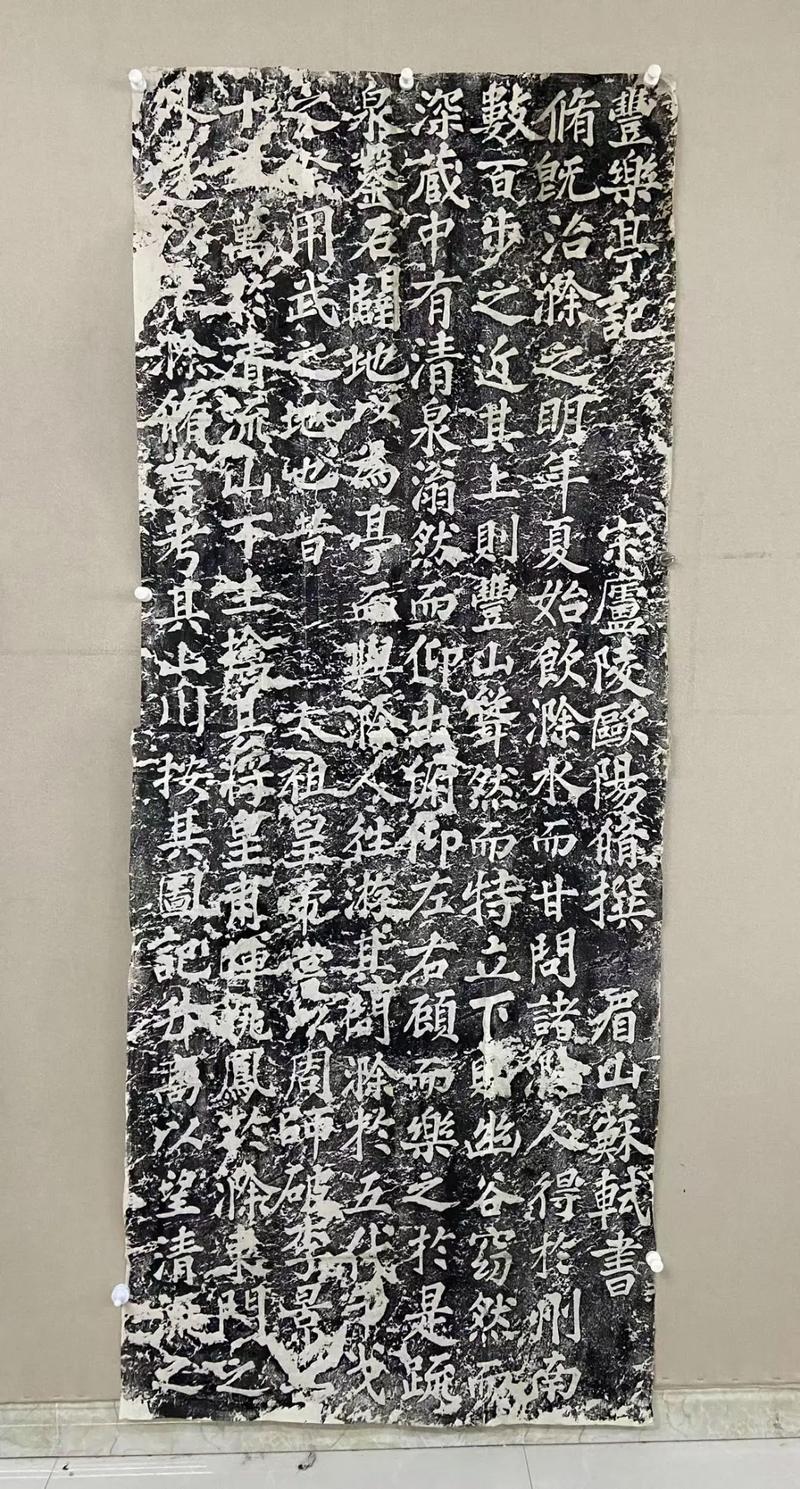 豐樂亭記　宋廬陵歐陽脩撰　眉山蘇軾書
脩既治滁之明年夏始飲滁水而甘問諸滁人得於州南
數百步之近其上則豐山聳然而特立下則幽谷窈然而
深藏中有清泉滃然而仰出俯仰左右顧而樂之於是疏
泉鑿石闢地以為亭而與滁人往游其間滁於五代干戈
之際用武之地也昔　太祖皇帝嘗以周師破李景兵
十五萬於清流山下生擒其將皇甫暉姚鳳於滁東門之
外遂以平滁脩嘗考其山川按其圖記升高以望清流之